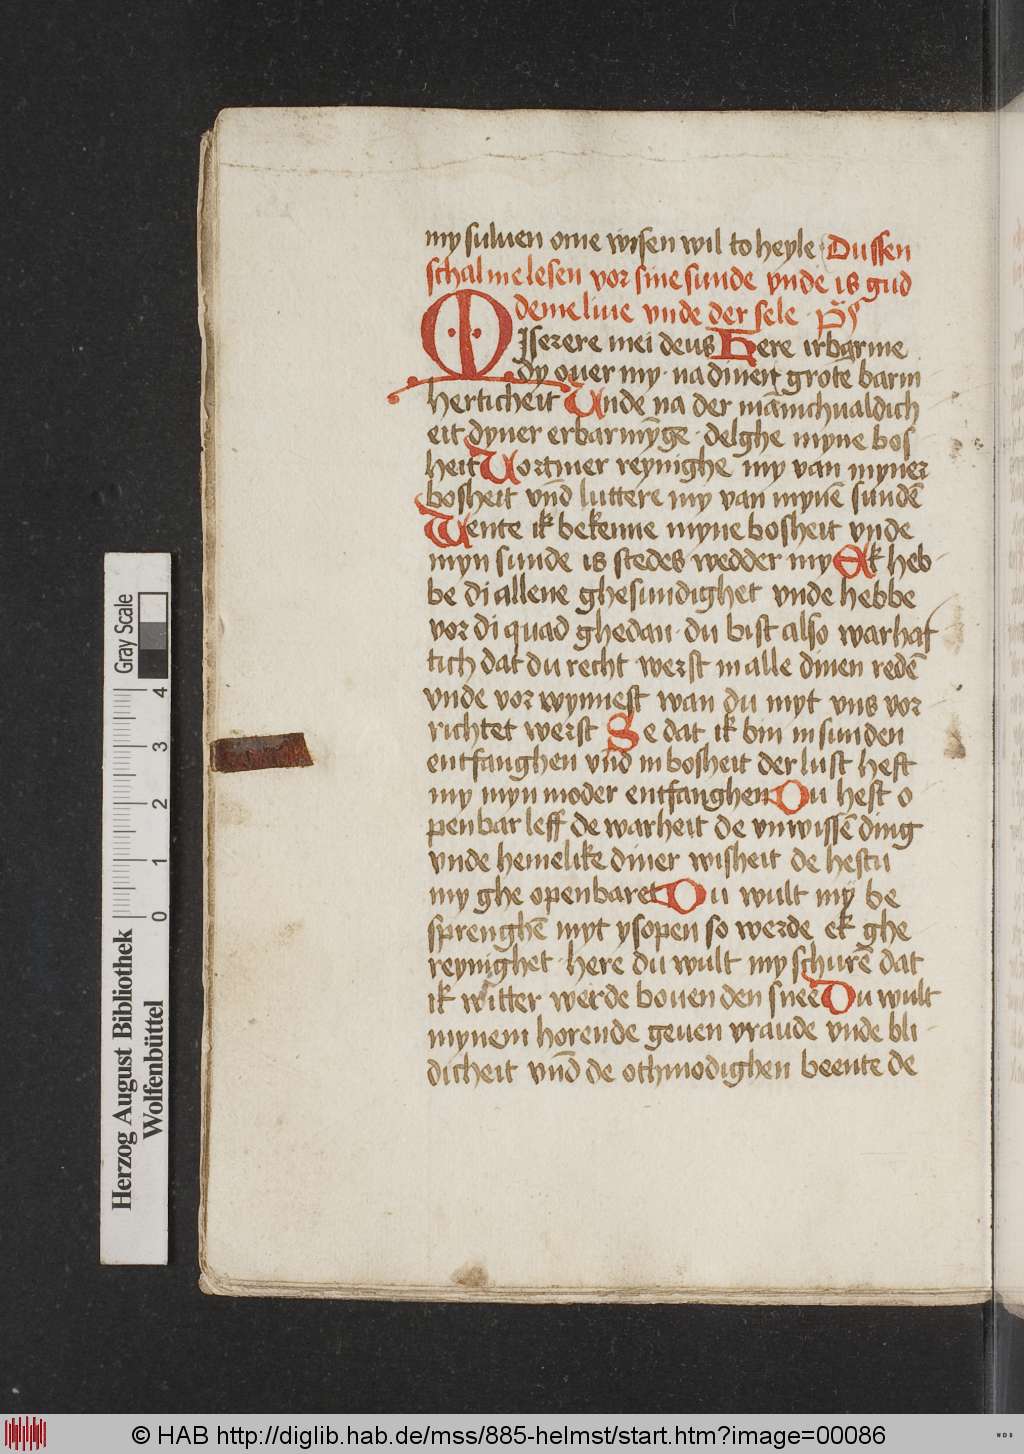 my suluen ome wisen wil to heyle Dussen
schal me lesen vor sine sunde vnde is gud
deme liue vnde der sele p̄s
Miserere mei deus Here irbarme
dy ouer my na dinen grote barm
herticheit Unde na der mānichualdich
eit dyner erbarmȳge delghe myne bos
heit Vortmer reynighe my van myner
bosheit vn̄d luttere my van mynē sundē
Wente ik bekenne myne bosheit vnde
myn sunde is stedes wedder my Ek heb
be di allene ghesundighet vnde hebbe
vor di quad ghedan du bist also warhaf
tich dat du recht werst in alle dinen redē
vnde vor wynnest wan du myt vns vor
richtet werst Se dat ik bin in sunden
entfanghen vn̄d in bosheit der lust heft
my myn moder entfanghen Du hest o
penbar leff de warheit de vnwissē ding
vnde hemelike diner wisheit de hestu
my ghe openbaret Du wult my be
sprenghē myt ysopen so werde ek ghe
reynighet here du wult my schurē dat
ik witter werde bouen den snee Du wult
mynem horende geuen vraude vnde bli
dicheit vn̄d de othmodighen beente de
Gray Scale
4 3 2 1 0
Herzog August Bibliothek
Wolfenbüttel
© HAB http://diglib.hab.de/mss/885-helmst/start.htm?image=00086